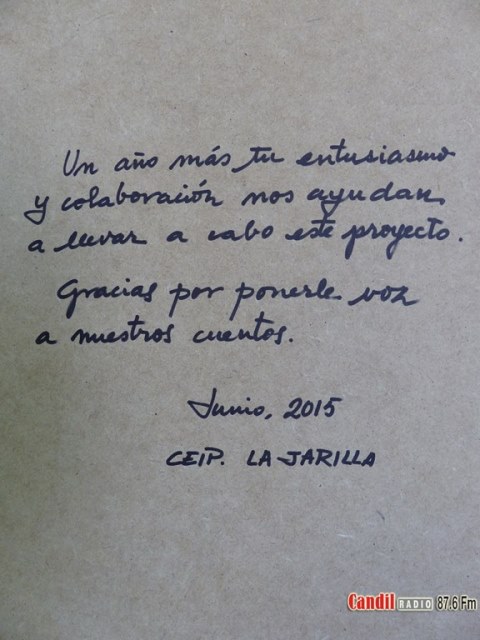 Un año más tu entusiasmo
y colaboración nos ayudan
a llevar a cabo este proyecto.
Gracias por ponerle voz
a nuestros cuentos.
Junio, 2015
CEIP. LA JARILLA
Candil RADIO 87.6 Fm